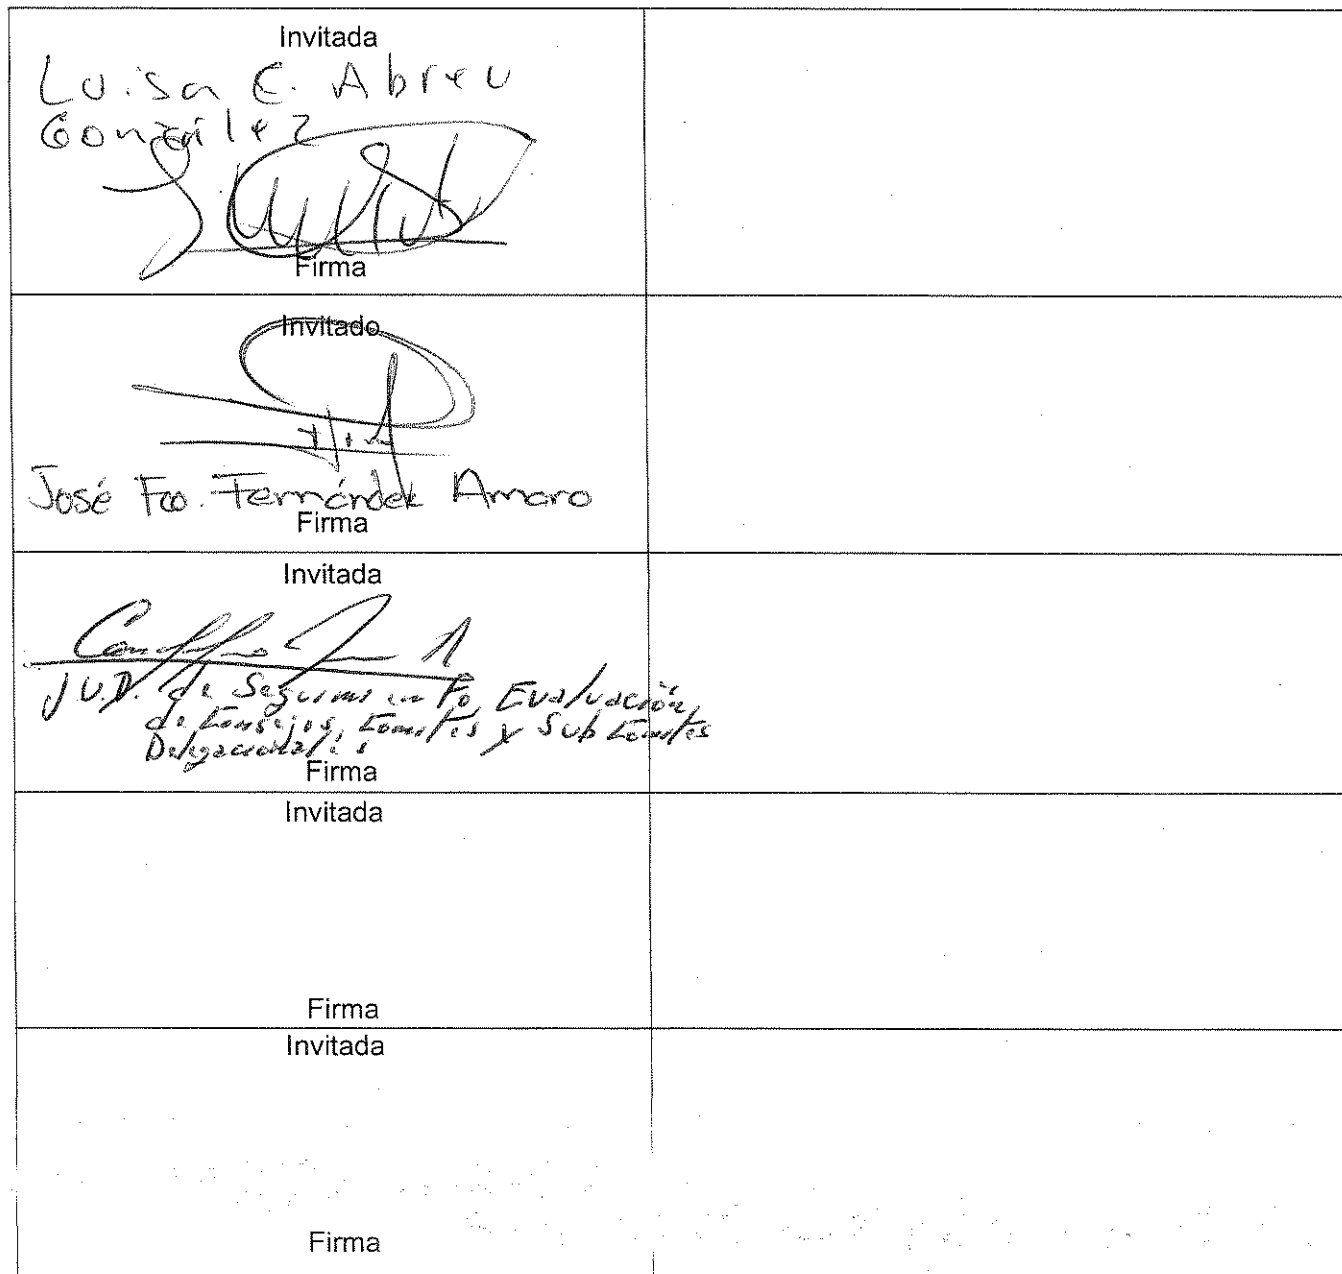 Invitada
Luisa E. Abreu
González
Firma
Invitado
José Fco. Fernández Amaro
Firma
Invitada
J.U.D. de Seguimiento, Evaluación
de Consejos, Comites y SubComites
Delegacionales
Firma
Invitada
Firma
Invitada
Firma